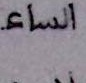 الساء